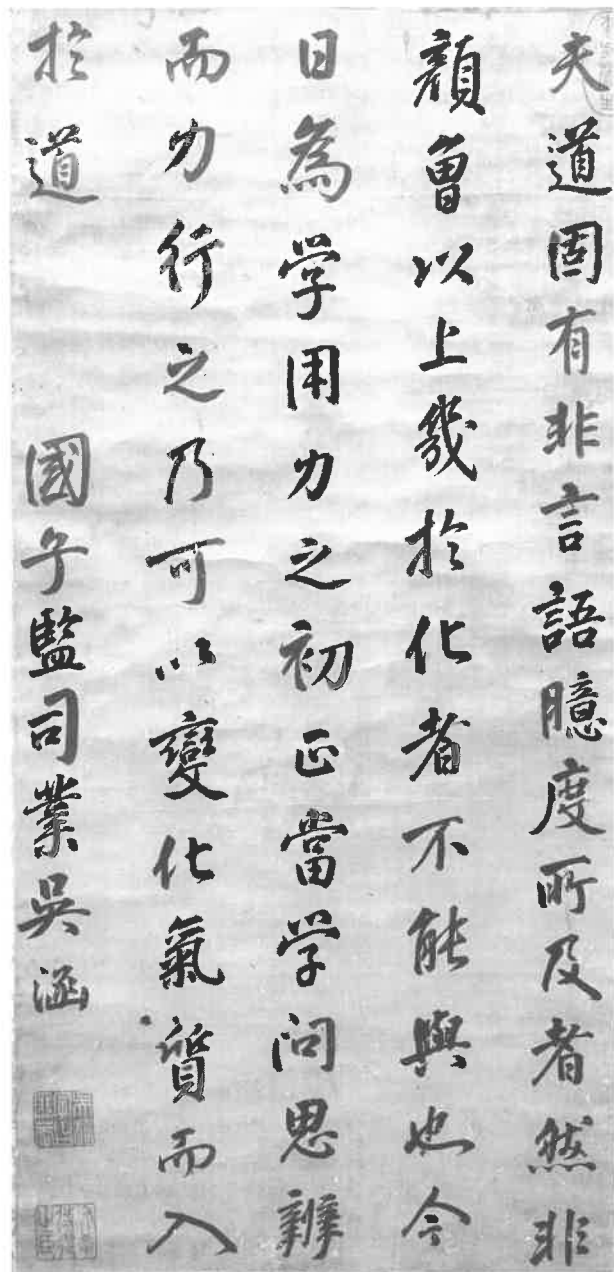 夫道固有非言語臆度所及者然非
顏曾以上幾於化者不能與也今
日為学用力之初正當学問思辨
而力行之乃可以變化氣質而入
於道 國子監司業吳涵